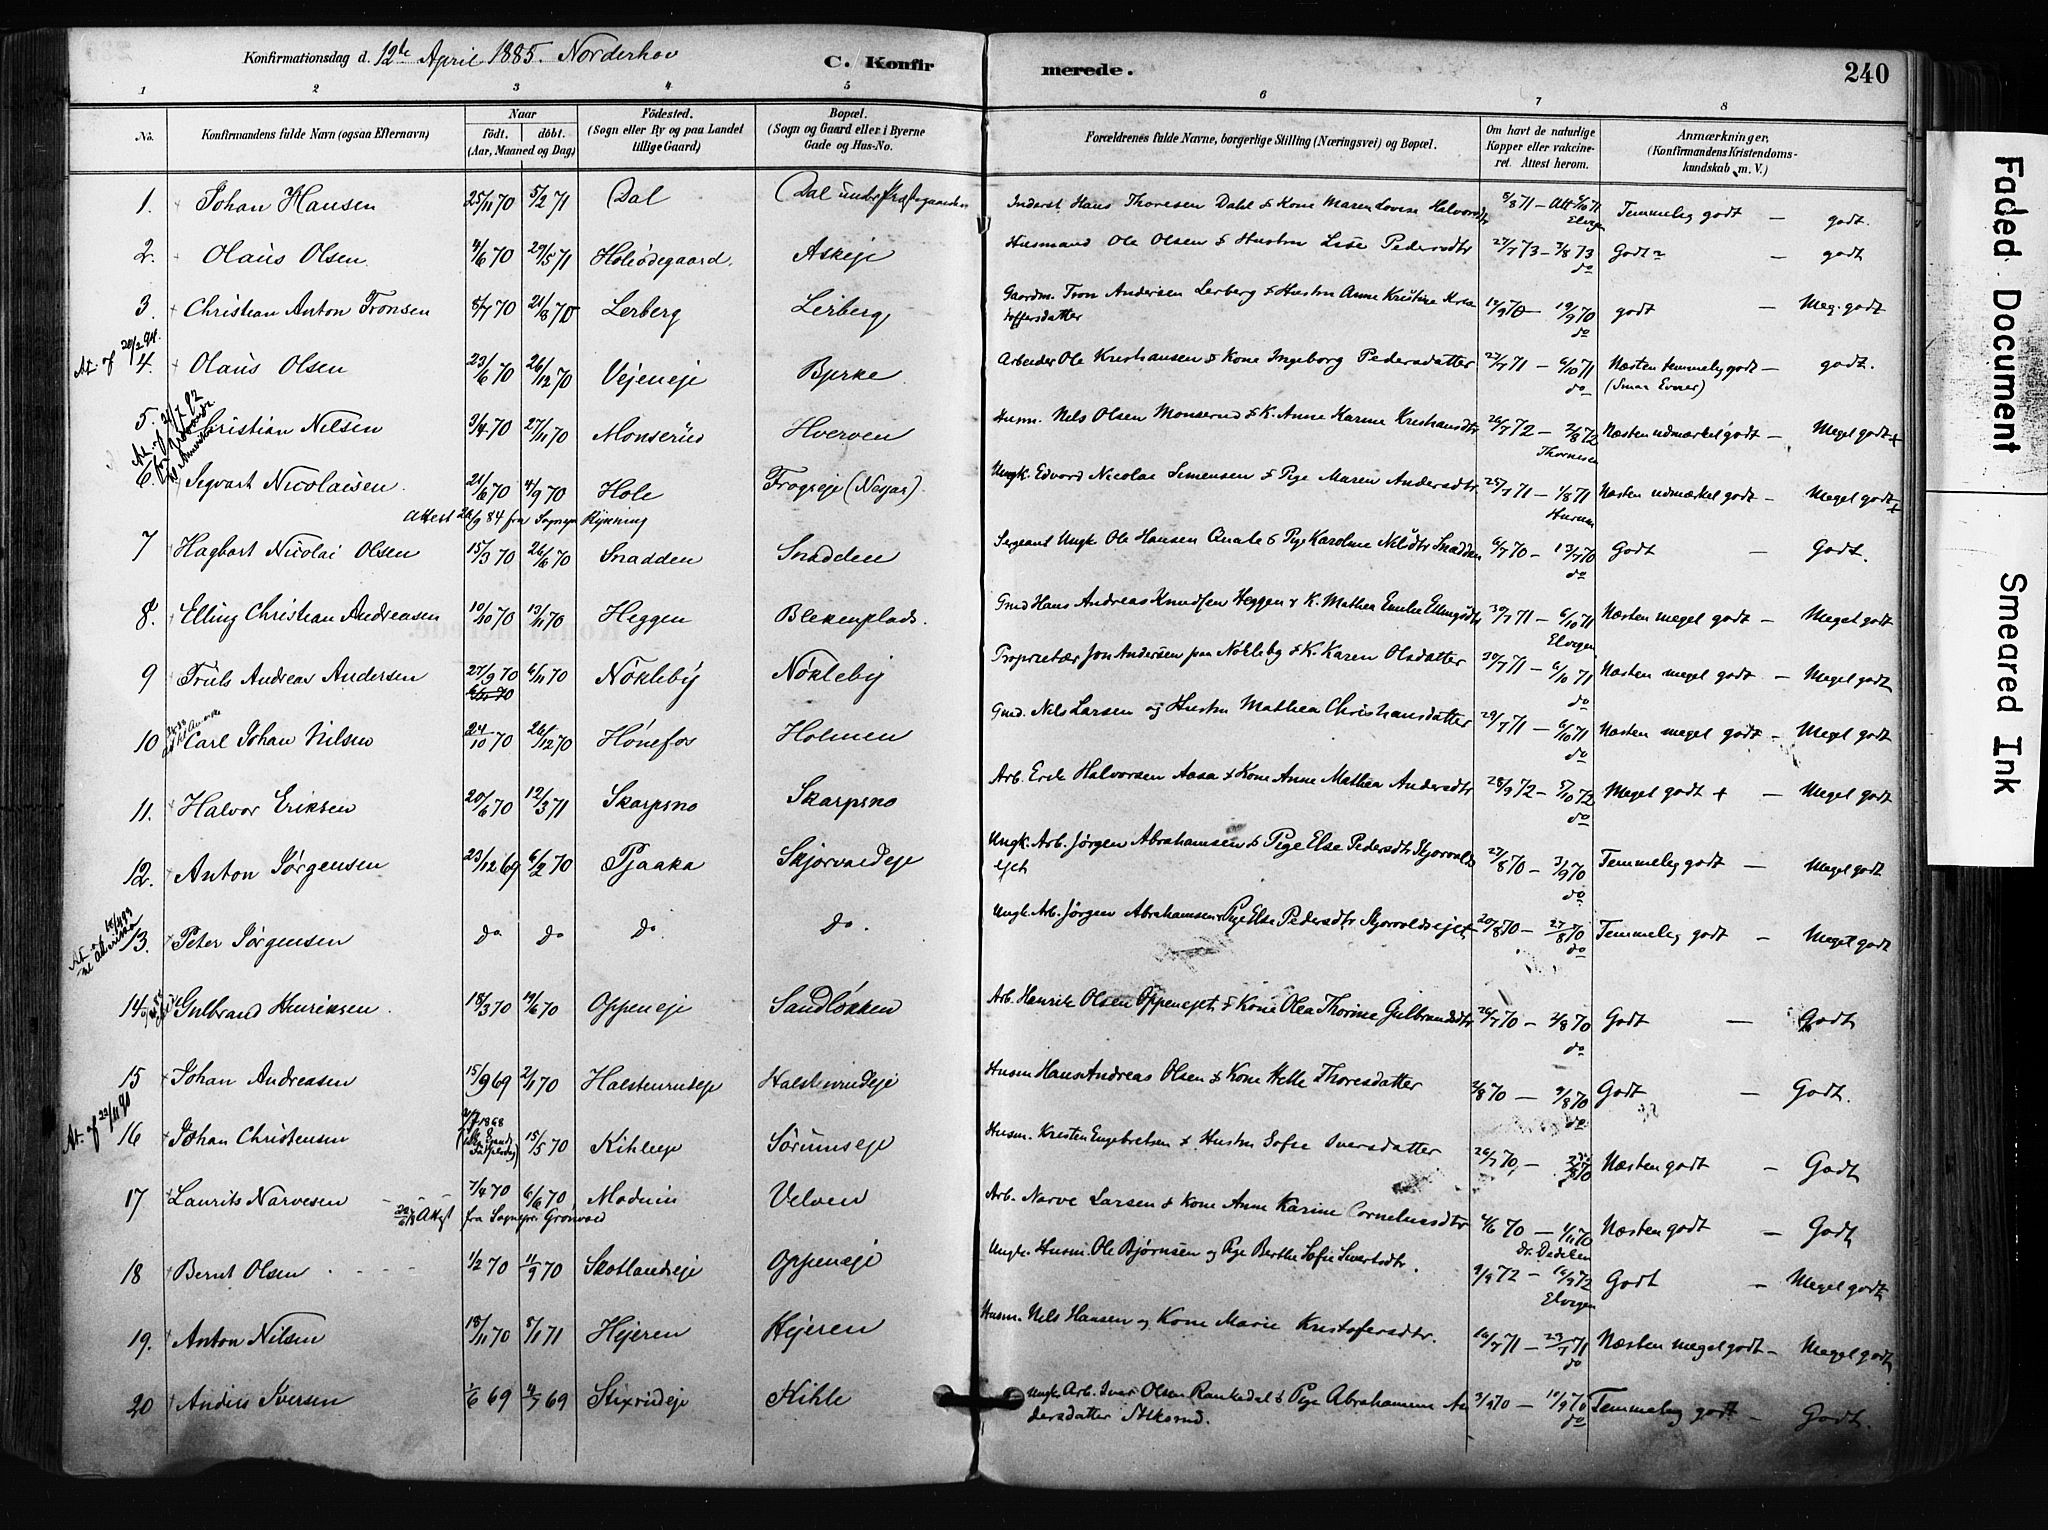 Konfirmationsdag d. 12te April 1885. Norderhov C. Konfirmerede. 240
1 2 3 4 5 6 7 8
No. Konfirmandens fulde Navn (ogsaa Efternavn) Naar födt. döbt. (Aar, Maaned og Dag) Födested. (Sogn eller By og paa Landet tillige Gaard) Bopæl. (Sogn og Gaard eller i Byerne Gade og Hus-No. Forældrenes fulde Navne, borgerlige Stilling (Næringsvei) og Bopæl. Om havt de naturlige Kopper eller vakcineret. Attest herom. Anmærkninger, (Konfirmandens Kristendomskundskab m. V.)
1. Johan Hansen 25/11 70 5/2 71 Dal Dal under Hans Thoresen Dahl & Kone Maren Lovise 5/8 71 Elvigen Temmelig godt - godt.
2. Olaus Olsen 4/6 70 29/5 71 Holeødegaard Askeje Husmand Ole Olsen & Hustru Lise Pedersdtr 27/7 73 - 3/8 73 do Godt - godt
3. Christian Anton Tronsen 8/7 70 21/8 70 Lerberg Lerberg Gaardm. Tron Andersen Lerberg & Hustru Anne Kristine Kristoffersdatter 19/9 70 do godt - Meg. godt
At. af 20/2 94.
4. Olaus Olsen 23/6 70 26/12 70 Vejeneje Bjerke Arbeider Ole Kristiansen & Kone Ingeborg Pedersdatter 27/7 71 - 6/10 71 do Næsten temmelig godt - godt.
5. Christian Nilsen 3/4 70 27/11 70 Monserud Hverven Husm. Nels Olsen Monserud & K. Anne Karine Kristiansdtr 26/7 72 - 2/8 72 Næsten udmærket godt - Meget godt +
At. af 21/7 92
6. Sigvart Nicolaisen 21/6 70 4/9 70 Hole Frogseje Ungk. Edvard Nicolai Simensen & Pige Maren Andersdtr 25/7 71 - 1/8 71 Næsten udmærket godt - Meget godt +
Attest 26/9 84 fra Sognepr Rynning
7 Hagbart Nicolai Olsen 15/3 70 26/6 70 Snadden Snadden Sergeant Ungk. Ole Hansen & Pige Karoline Nilsdtr Snadden 6/7 70 - 13/7 70 do Godt - Godt.
8. Elling Christian Andreasen 10/10 70 13/11 70 Heggen Blekenplads. Gmd Hans Andreas Knudsen Heggen & K. Mathea Emilie Ellingsdtr 30/7 71 - 6/10 71 Elvigen Næsten meget godt - Meget godt
9 Truls Andreas Andersen 27/9 70 6/11 70 Nökleby Nökleby Proprietær Jon Andersen paa Nökleby & K. Karen Olsdatter 30/7 71 - 6/10 71 do Næsten meget godt - Meget godt
10 Carl Johan Nilsen 24/10 70 26/12 70 Hönefos Holmen Gmd. Nils Larsen og Hustru Mathea Christiansdatter 29/7 71 - 6/10 71 do Næsten meget godt - Meget godt
11. Halvor Eriksen 20/6 70 12/3 71 Skarpsno Skarpsno Arb. Erik Halvorsen Aasa & Kone Anne Mathea Andersdtr 28/9 72 - 5/10 72 do Meget godt + - Meget godt
12. Anton Jörgensen 23/12 69 6/2 70 Pjaaka Skjorvoldeje Ungk. Arb. Jörgen Abrahamsen & Pige Else Pedersdtr Skjorvoldejet 27/8 70 - 3/9 70 do. Temmelig godt - Meget godt
13. Peter Jörgensen do do do do. Ungk. Arb. Jörgen Abrahamsen & Pige Else Pedersdtr Skjorvoldsejet 20/8 70 - 27/8 70 do Temmelig godt - Meget godt
14 Gulbrand Henriksen. 18/3 70 19/6 70 Oppeneje Sandlökken Arb. Henrik Olsen Oppenejet & Kone Olea Thorine Gulbrandsdtr 26/7 70 - 2/8 70 do Godt - Godt
15 Johan Andreasen 15/9 69 2/1 70 Halstenrudeje Halstenrudeje Husm Hans Andreas Olsen & Kone Helle Thoresdatter 2/8 70 - 9/8 70 do Godt - Godt.
At. af 22/11 90
16 Johan Christensen 15/5 70 Kihleeje Sörumseje Husm. Kristen Engebretsen & Hustru Sofie Iversdatter 26/7 70 - Næsten godt - Godt
17 Laurits Narvesen 7/4 70 6/6 70 Modum Velven Arb. Narve Larsen & Kone Anne Karine Corneliusdtr 4/6 70 - 4/11 70 Næsten godt - Godt
Attest fra Sognepr. Grönvold
18 Bernt Olsen 1/2 70 11/9 70 Skotlandseje Oppeneje Ungk. Husm. Ole Björnsen og Pige Berthe Sofie Sivertsdtr. 9/9 72 - 16/9 72 Elvigen Godt - Meget godt
19. Anton Nilsen 18/11 70 8/1 71 Hejeren Hejeren Husm. Nels Hansen og Kone Marie Kristofersdtr. 16/7 71 - 23/7 71 do Næsten meget godt - Meget godt
20 Anders Iversen 1/6 69 4/7 69 Stixrudeje Kihle Ungk. Arb. Iver Olsen Rankedal & Pige Abrahamine Andersdatter 3/9 70 - 10/9 70 do Temmelig godt - Godt.
Faded Document
Smeared Ink